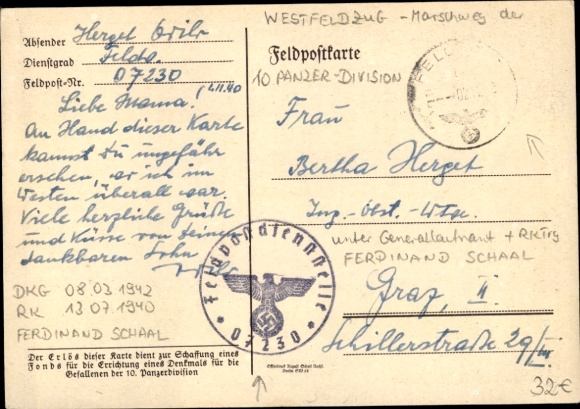 WESTFELDZUG - Marschweg der
10 PANZER-DIVISION
Absender Herget
Dienstgrad Feldw.
Feldpost-Nr. 07230
4.11.40
Liebe Mama!
An Hand dieser Karte
kannst Du ungefähr
ersehen, wo ich im
Westen überall war.
Viele herzliche Grüße
und Küsse von Deinem
dankbaren Sohn
DKG 08.03 1942
RK 13.07.1940
FERDINAND SCHAAL
Der Erlös dieser Karte dient zur Schaffung eines
Fonds für die Errichtung eines Denkmals für die
Gefallenen der 10. Panzerdivision
Feldpostkarte
Frau
Bertha Herget
Ing.-Obst.-Wtwe.
unter Generalleutnant + RKTrg
FERDINAND SCHAAL
Graz, II.
Schillerstraße 29/III
32€
Feldpostdienststelle
07230